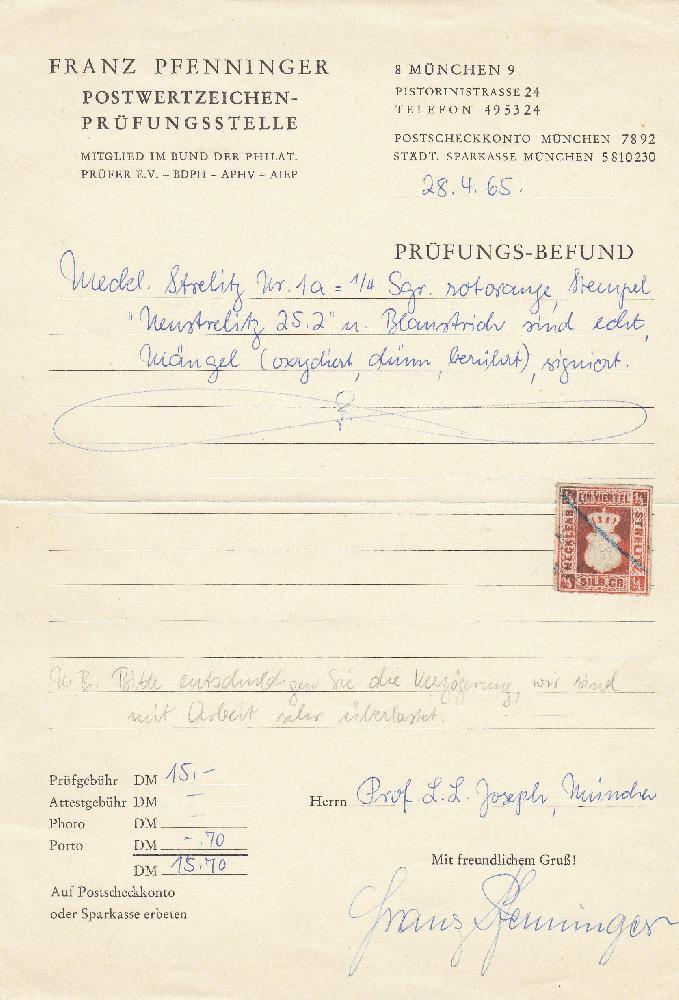 FRANZ PFENNINGER
POSTWERTZEICHEN-
PRÜFUNGSSTELLE
MITGLIED IM BUND DER PHILAT.
PRÜFER E.V. – BDPH – APHV – AIEP
8 MÜNCHEN 9
PISTORINISTRASSE 24
TELEFON 495324
POSTSCHECKKONTO MÜNCHEN 7892
STÄDT. SPARKASSE MÜNCHEN 5810230
28.4.65.
PRÜFUNGS-BEFUND
Meckl. Strelitz Nr. 1a = 1/4 Sgr. rotorange, Stempel
"Neustrelitz 25.2" u. Blaustrich sind echt,
Mängel (oxydiert, dünn, berührt), signiert.
1/4 EIN VIERTEL 1/4
MECKLENB
STRELITZ
1/4 SILB.GR. 1/4
N.B. Bitte entschuldigen Sie die Verzögerung, wir sind
mit Arbeit sehr überlastet.
Prüfgebühr DM 15.-
Attestgebühr DM –
Photo DM –
Porto DM -.70
DM 15.70
Auf Postscheckkonto
oder Sparkasse erbeten
Herrn Prof. L.L. Joseph, München
Mit freundlichem Gruß!
Franz Pfenninger